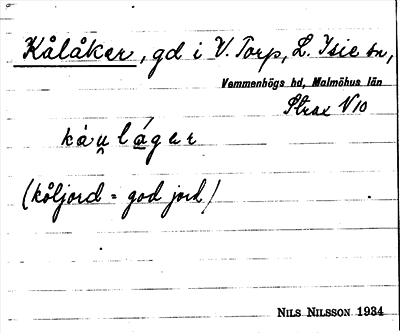 Kålåker, gd i V. Torp, L. Isie sn,
Vemmenhögs hd, Malmöhus län
Strax V10
káu̯lágar
(kåljord = god jord)
NILS NILSSON 1934